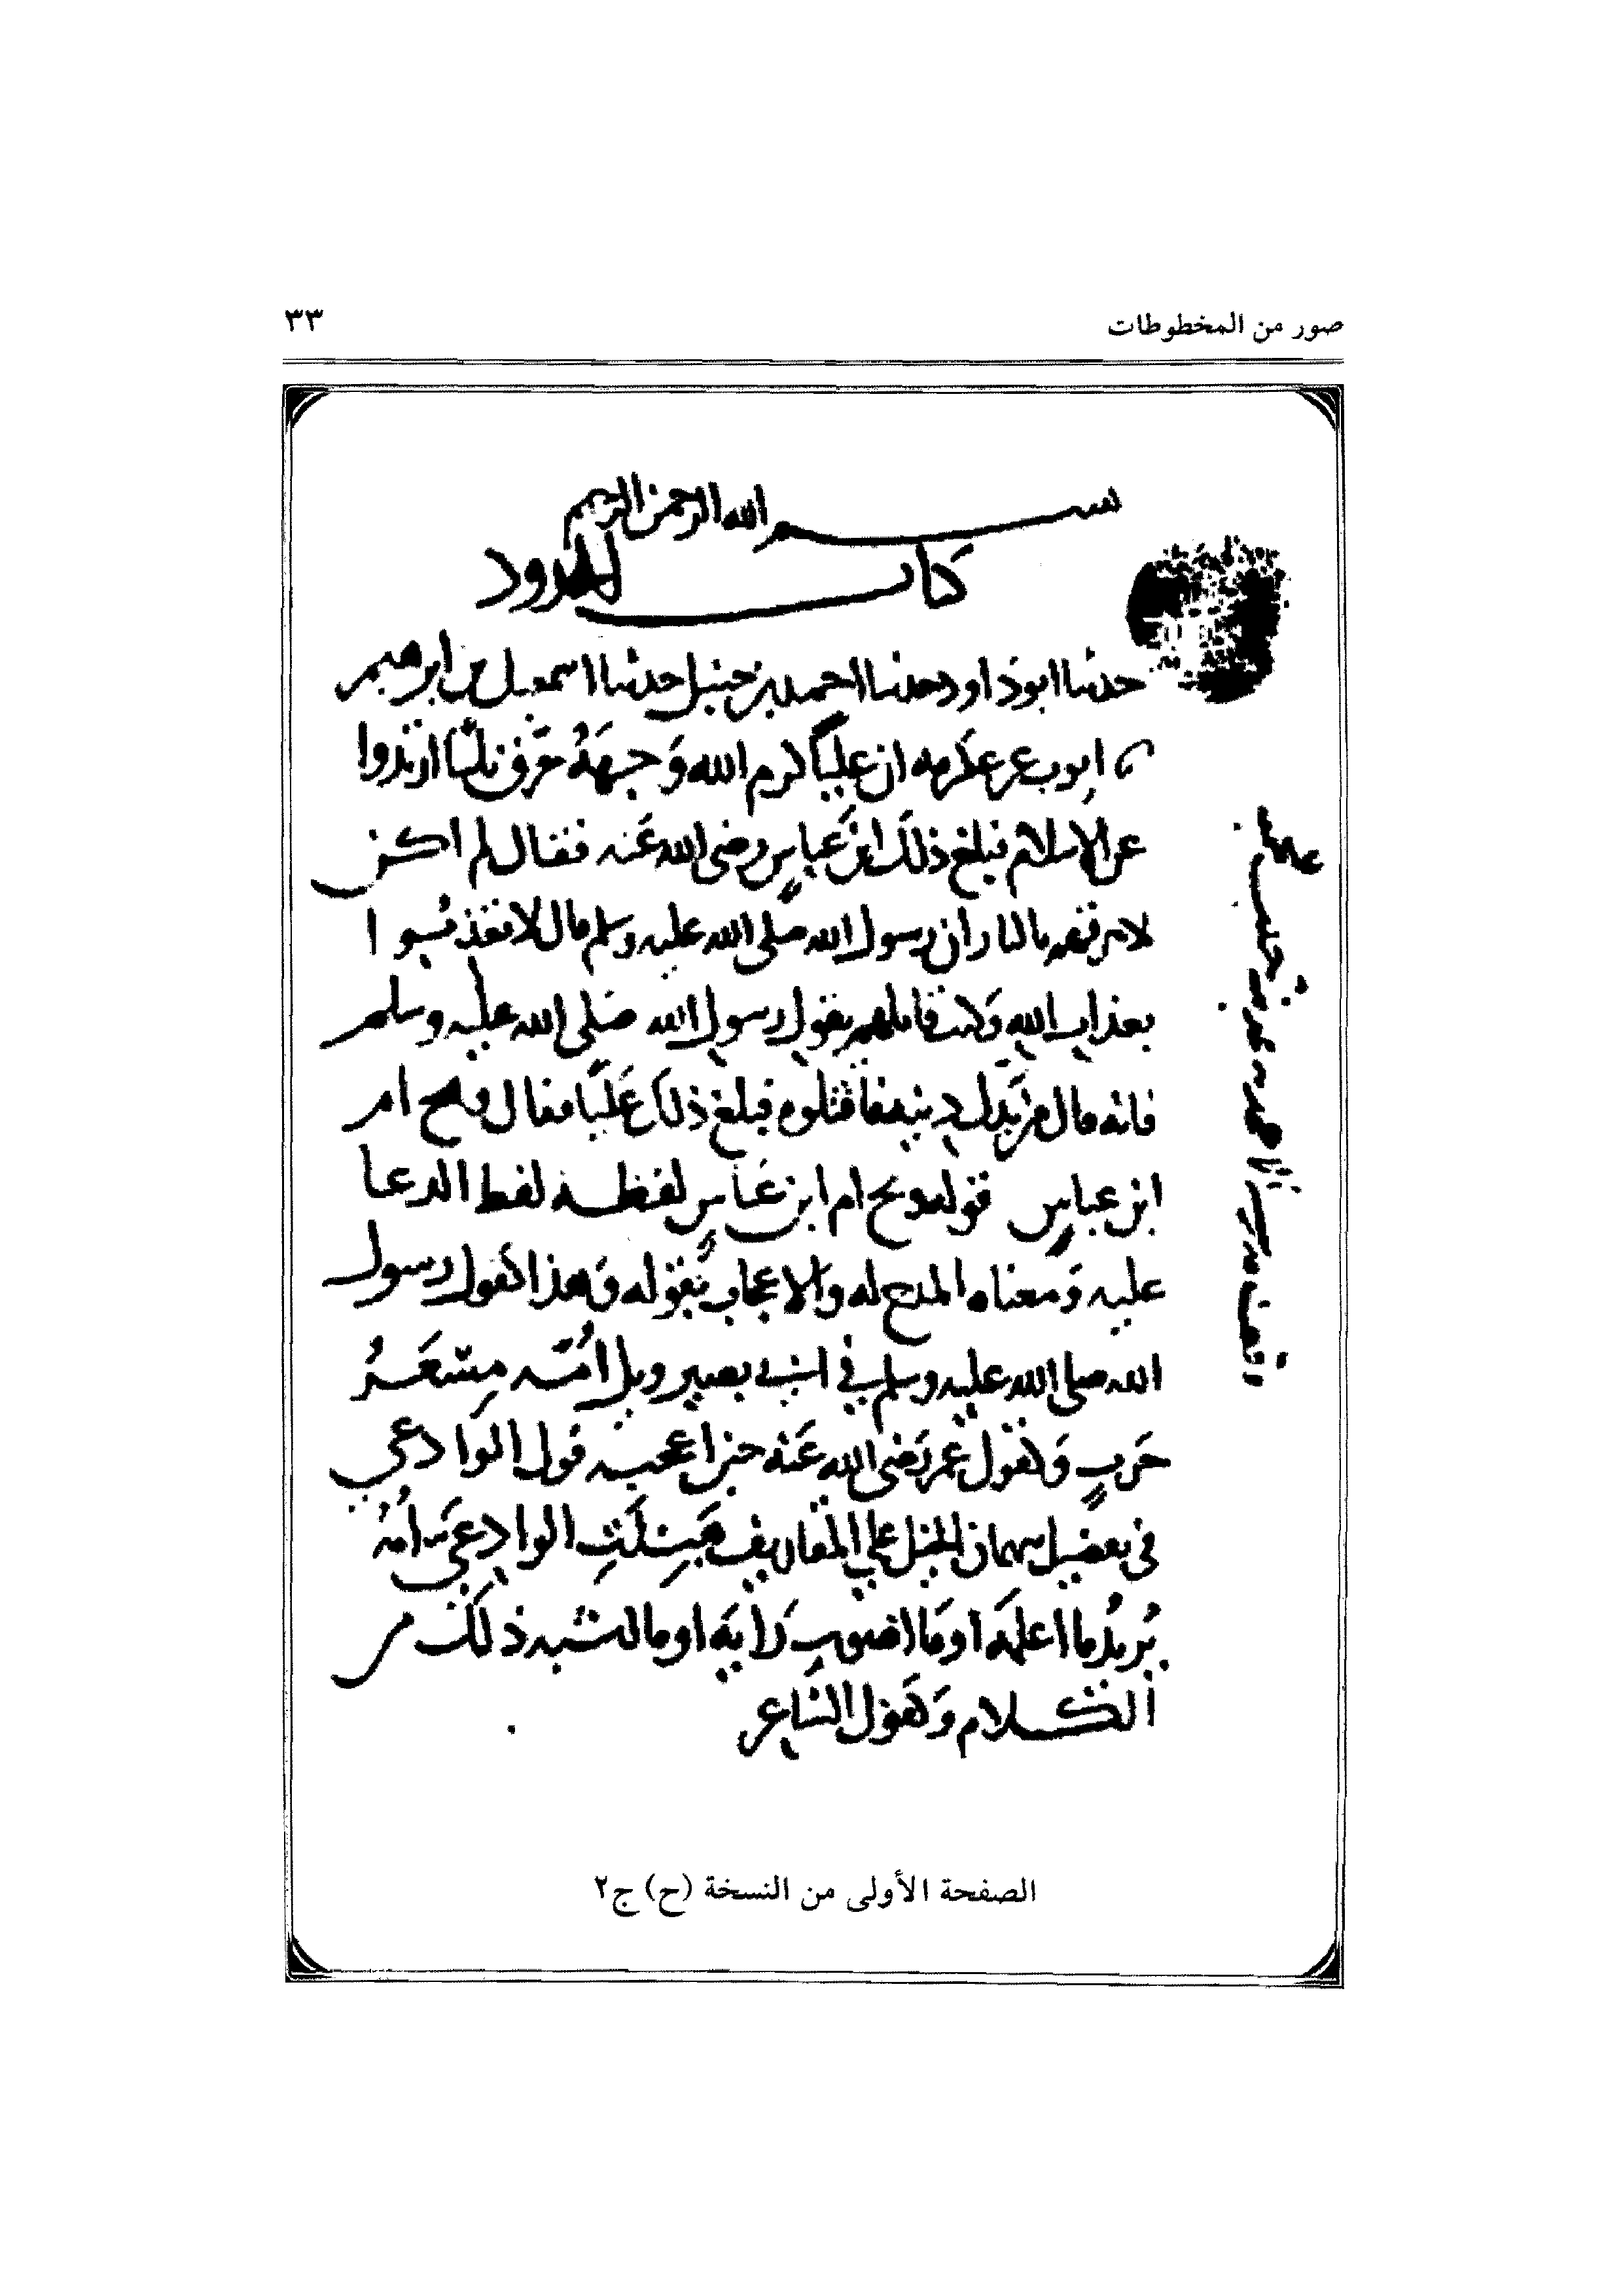 صور من المخطوطات
٣٣
بسم الله الرحمن الرحيم
كتاب الحدود
حدثنا ابوداود حدثنا احمد بن حنبل حدثنا اسمعيل بن ابرهيم
ايوب عن عكرمه ان عليا كرم الله وجهه حرق ناسا ارتدوا
عن الاسلام فبلغ ذلك ابن عباس رضى الله عنه فقال لم اكن
لاحرقهم بالنار ان رسول الله صلى الله عليه وسلم قال لا تعذبوا
بعذاب الله وكنت قاتلهم بقول رسول الله صلى الله عليه وسلم
فانه قال من بدل دينه فاقتلوه فبلغ ذلك عليا فقال ويح ام
ابن عباس قوله ويح ام ابن عباس لفظه لفظ الدعا
عليه ومعناه المدح له والاعجاب بقوله وهذا كقول رسول
الله صلى الله عليه وسلم في ابي بصير ويل امه مسعر
حرب وكقول عمر رضى الله عنه حين اعجبه قول الوادعي
في تفضيل سهمان الخيل على المقاريف هبلت الوادعي امه
يريد ما اعلمه او ما اصوب رايه او ما اشبه ذلك من
الكلام وكقول الشاعر
الصفحة الأولى من النسخة (ح) ج٢